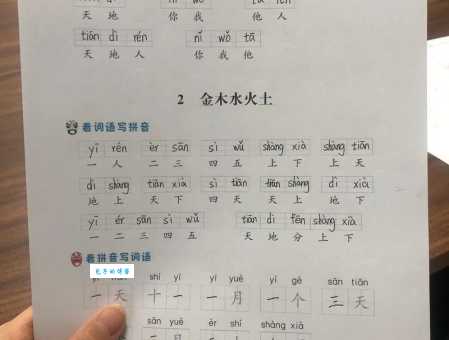 天 地 你 我 他 人
tiān dì rén nǐ wǒ tā
天 地 人 你 我 他
2 金木水火土
看词语写拼音
yī rén èr sān sì wǔ shàng xià shàng tiān
一 人 二 三 四 五 上 下 上 天
dì shàng tiān xià sì tiān tiān shàng dì xià
地 上 天 下 四 天 天 上 地 下
yī ér sān sì wǔ tiān dì fēn shàng xià
一 二 三 四 五 天 地 分 上 下
看拼音写词语
shí yī yí yuè yí gè sān tiān
一 天 十 一 一 月 一 个 三 天
sān yuè èr shí shàng xià